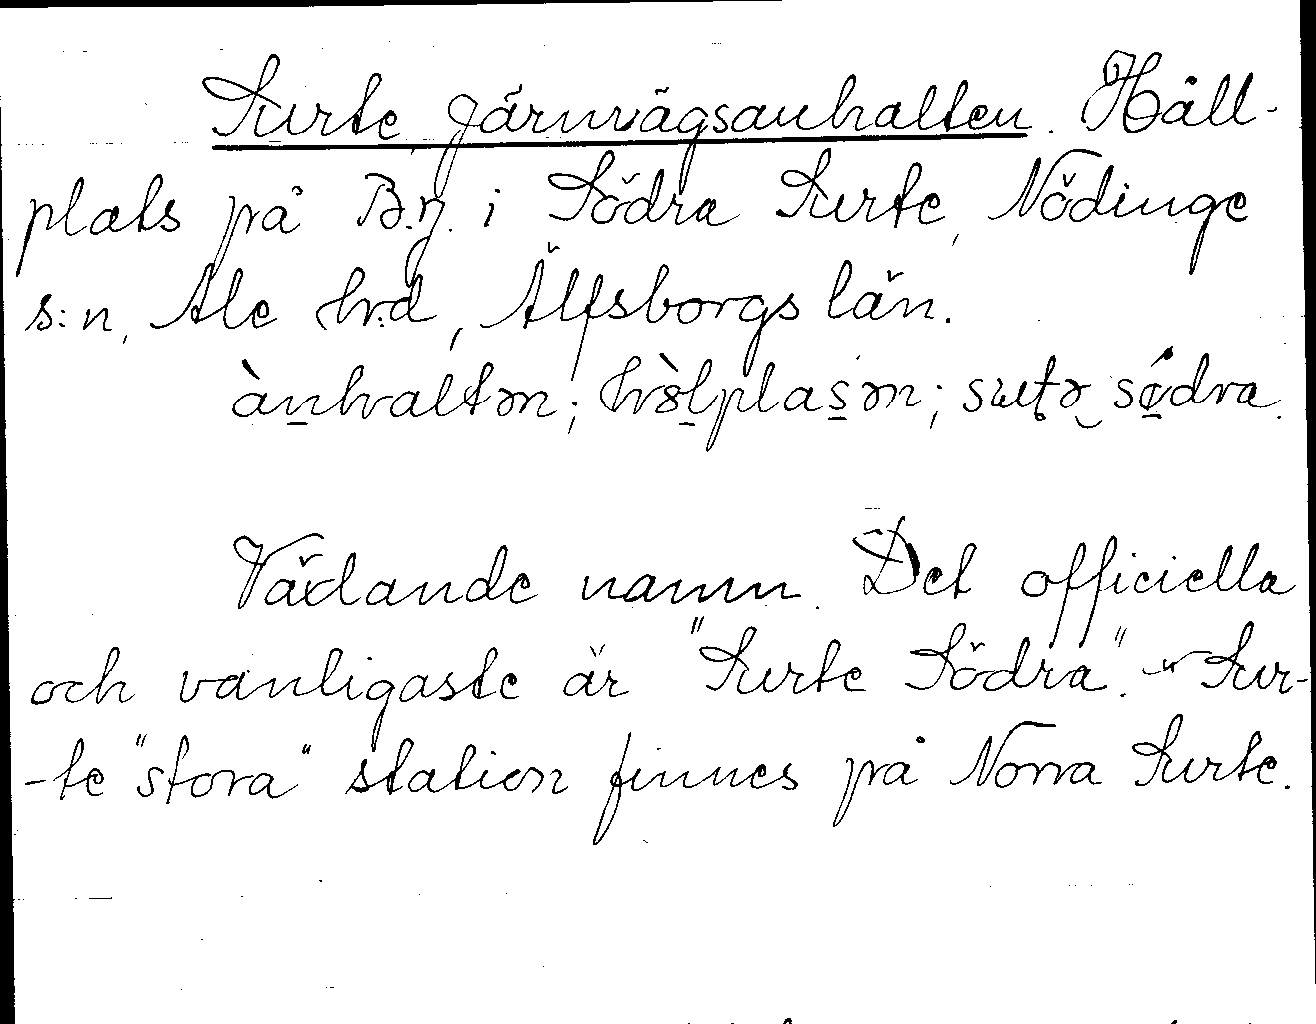 Surte järnvägsanhalten. Håll-
plats på B.J. i Södra Surte, Nödinge
s:n, Ale hd, Älfsborgs län.
ànhaltən; hòlplasən; sʉʈə södra.
Vädande namn. Det officiella
och vanligaste är "Surte Södra". - Sur-
-te "stora" station finnes på Norra Surte.